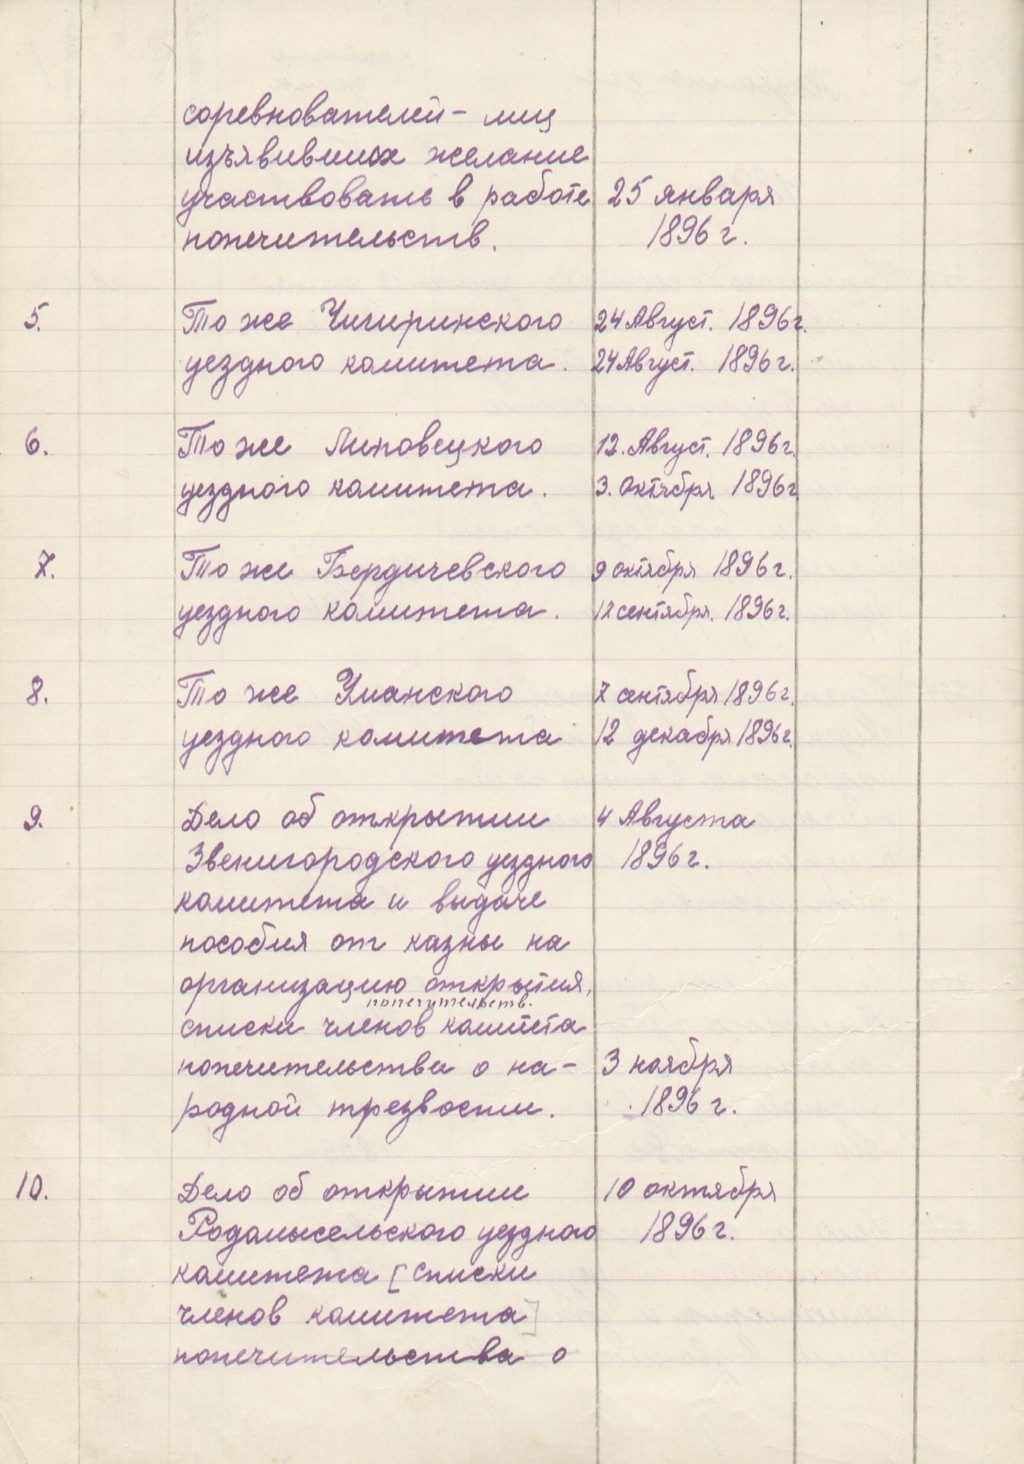 соревнователей – лиц
изъявивших желание
участвовать в работе 25 января
попечительств. 1896 г.
5. То же Чигиринского 24 Август. 1896 г.
уездного комитета. 24 Август. 1896 г.
6. То же Липовецкого 12. Август. 1896 г.
уездного комитета. 3. октября 1896 г
7. То же Бердичевского 9 октября 1896 г.
уездного комитета. 12 сентября. 1896 г.
8. То же Уманского 7 сентября 1896 г.
уездного комитета 12 декабря 1896 г.
9. Дело об открытии 4 Августа
Звенигородского уездного 1896 г.
комитета и выдаче
пособия от казны на
организацию открытия,
попечительств.
списки членов комитета
попечительства о на- 3 ноября
родной трезвости. 1896 г.
10. Дело об открытии 10 октября
Родомысельского уездного 1896 г.
комитета [списки
членов комитета]
попечительства о